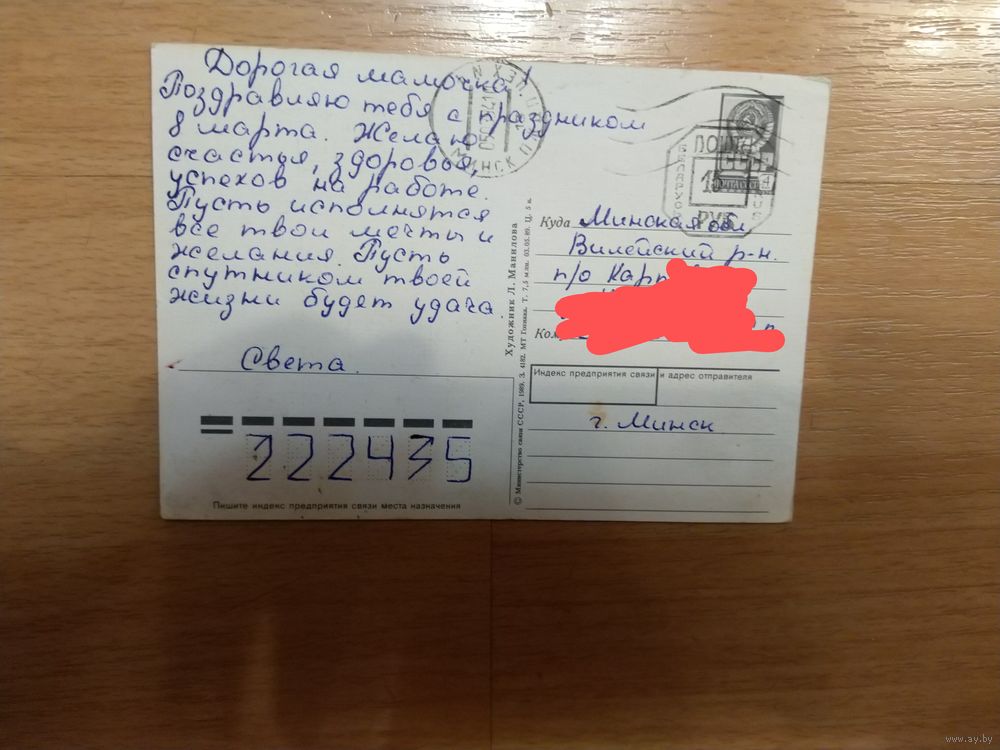 Дорогая мамочка!
Поздравляю тебя с праздником
8 марта. Желаю
счастья, здоровья,
успехов на работе.
Пусть исполнятся
все твои мечты и
желания. Пусть
спутником твоей
жизни будет удача.
Света.
222435
Пишите индекс предприятия связи места назначения
© Министерство связи СССР, 1989. З. 4182. МТ Гознака. Т. 7,5 млн. 03.05.89. Ц. 5 к.
Художник Л. Манилова
МИНСК
ПОШТА
РУБ
Куда Минская обл,
Вилейский р-н.
п/о Кар
Ком
Индекс предприятия связи и адрес отправителя
г. Минск
www.ay.by